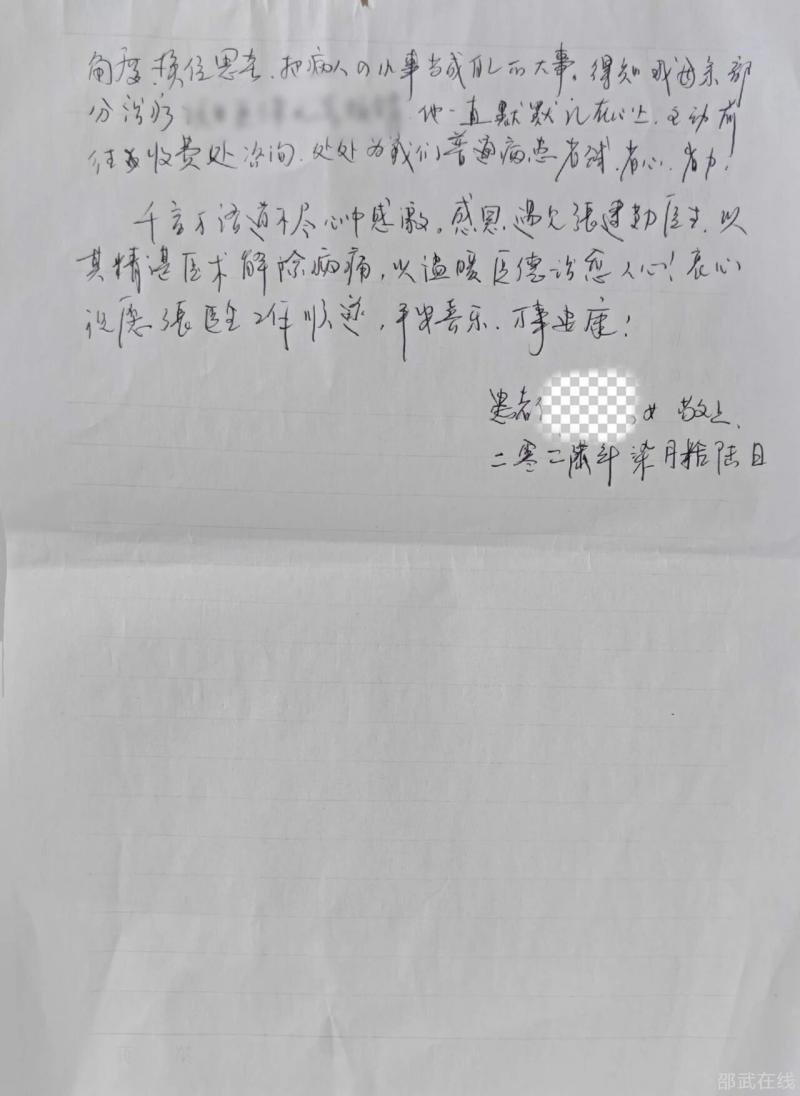 角度换位思考，把病人的小事当成自己的大事。得知我母亲部
分治疗 他一直默默记在心上，主动前
往收费处咨询，处处为我们普通病患省钱、省心、省力！
千言万语道不尽心中感激。感恩遇见張建勤医生，以
其精湛医术解除病痛，以温暖医德治愈人心！衷心
祝愿張医生工作顺遂，平安喜乐，万事安康！
患者 女 敬上
二零二陸年柒月拾陆日
邵武在线